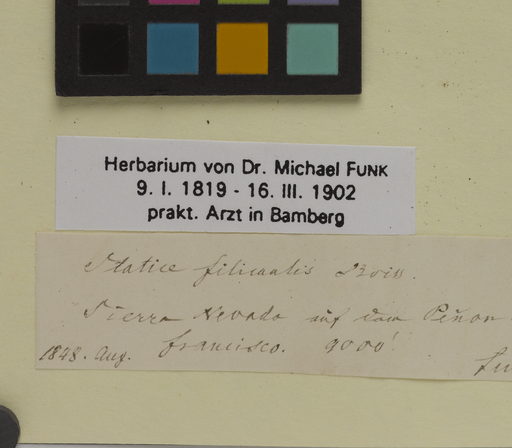 Herbarium von Dr. Michael FUNK
9. I. 1819 - 16. III. 1902
prakt. Arzt in Bamberg
Statice filicaulis Boiss.
Sierra Nevada auf dem Peñon
Francisco. 9000'
1848. Aug.